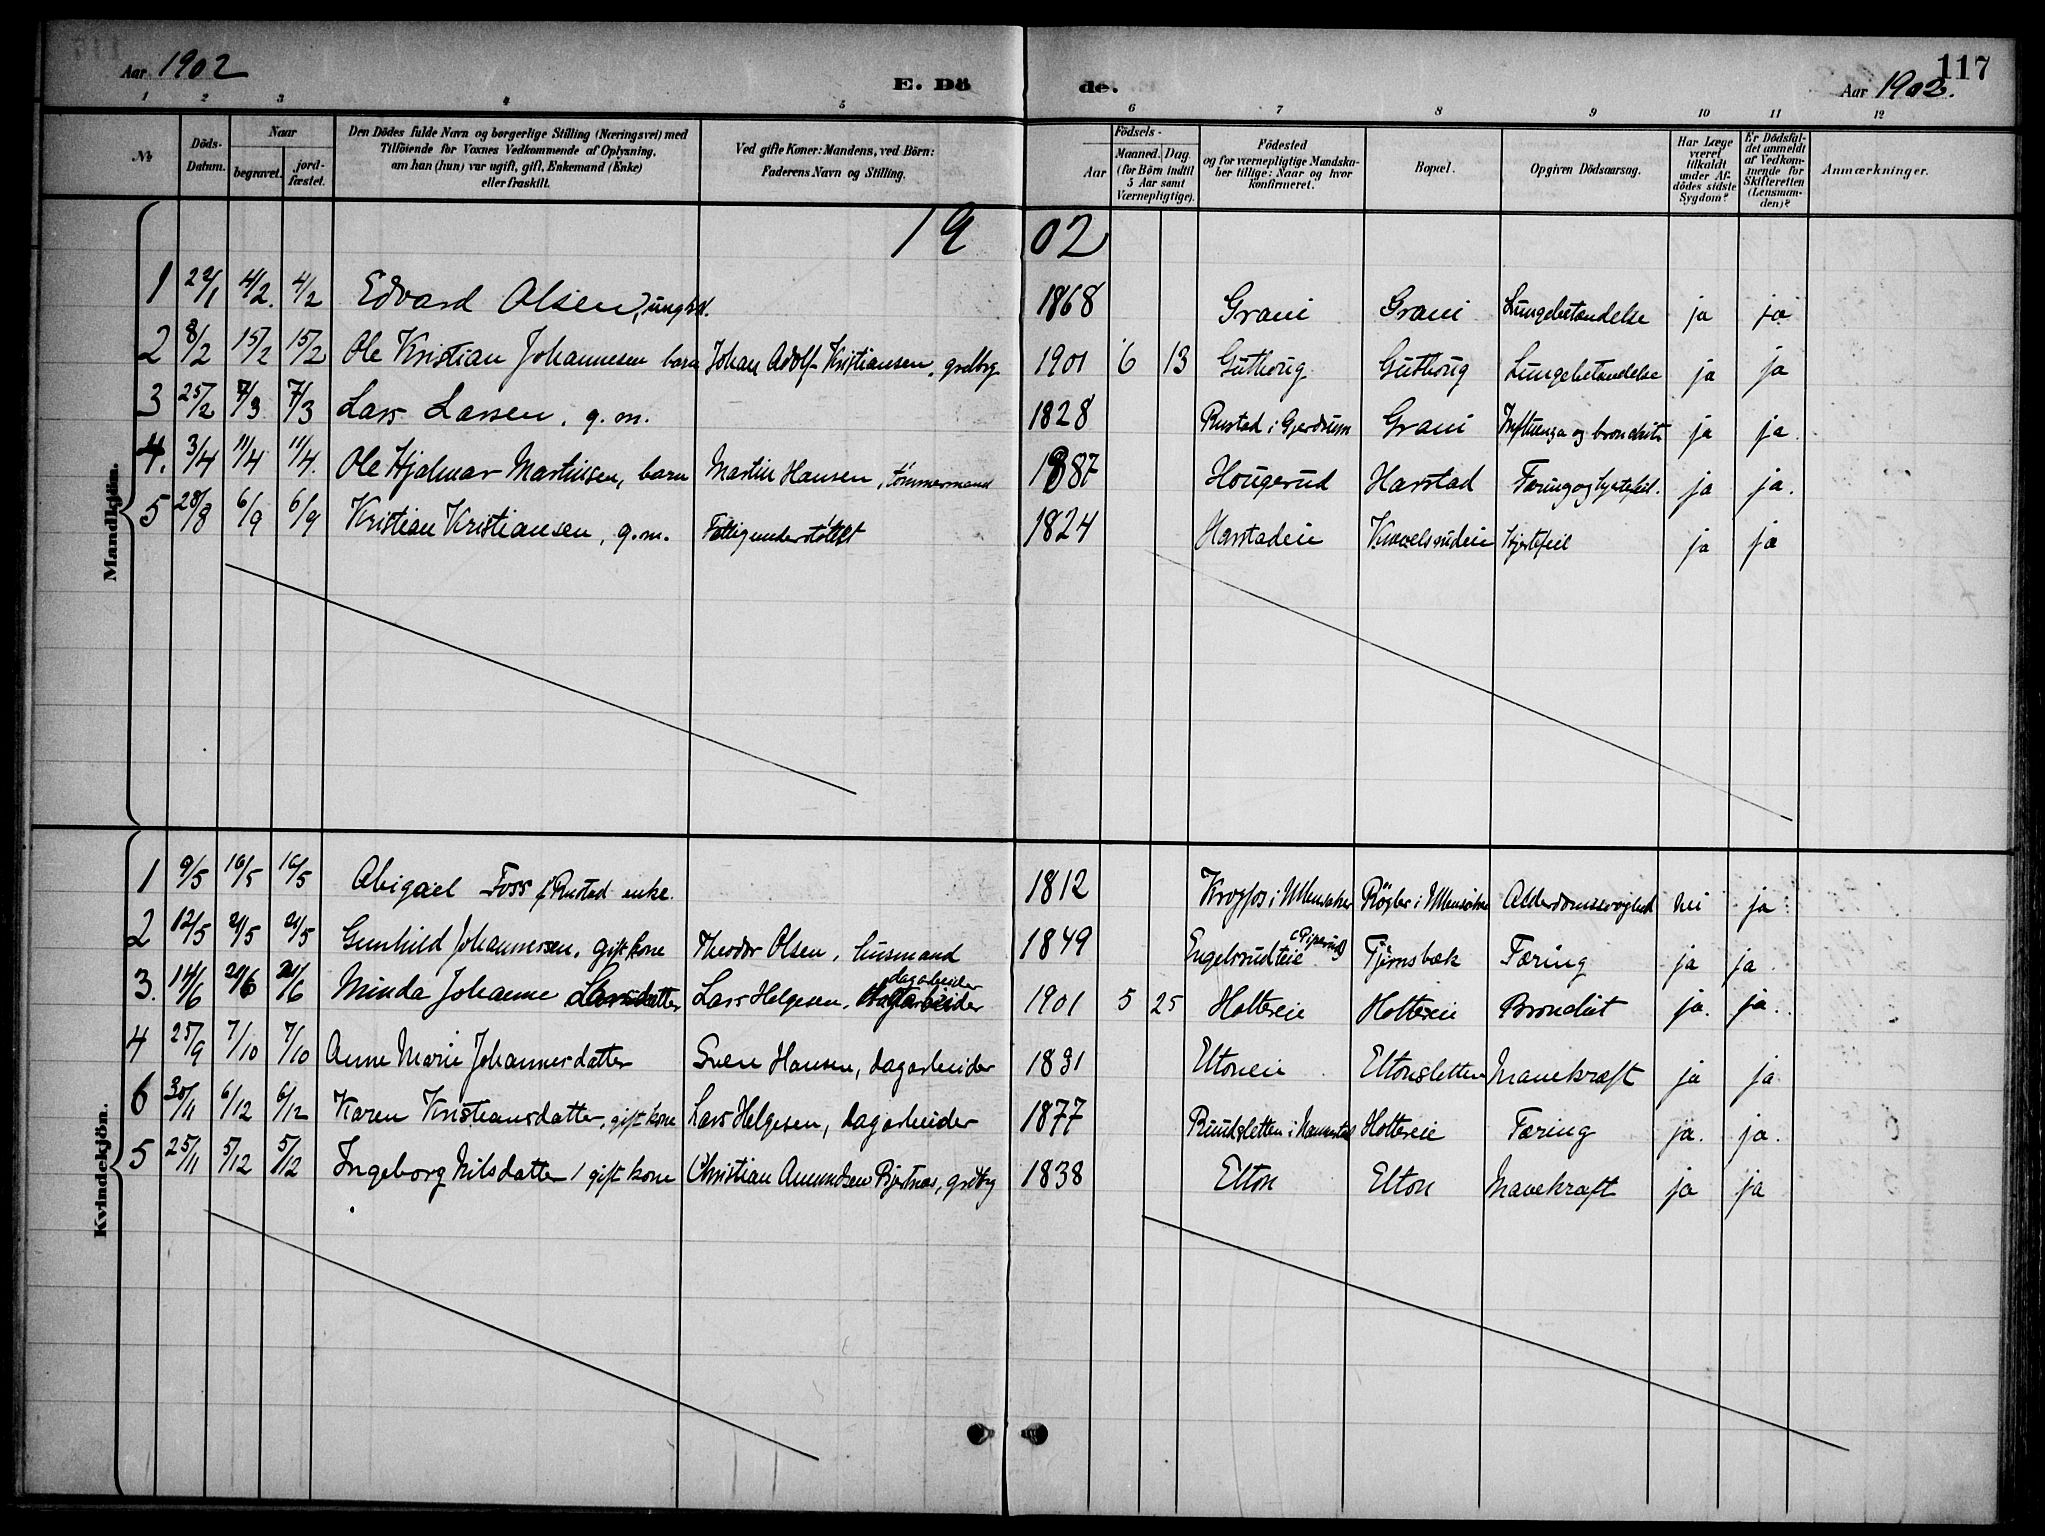 117
Aar 1902
E. Dö de.
Aar 1902.
1 2 3 4 5 6 7 8 9 10 11 12
No
Döds-Datum.
Naar
begravet.
jord-fæstet.
Den Dödes fulde Navn og borgerlige Stilling (Næringsvei) med
Tilföiende for Voxnes Vedkommende af Oplysning,
om han (hun) var ugift, gift, Enkemand (Enke)
eller fraskilt.
Ved gifte Koner: Mandens, ved Börn:
Faderens Navn og Stilling.
Födsels-
Aar
Maaned. Dag.
(for Börn indtil
5 Aar samt
Værnepligtige).
Födested
og for værnepligtige Mandska-
ber tillige: Naar og hvor
konfirmeret.
Bopæl.
Opgiven Dödsaarsag.
Har Læge
været
tilkaldt
under Af-
dödes sidste
Sygdom?
Er Dödsfal-
det anmeldt
af Vedkom-
mende for
Skifteretten
(Lensman-
den)?
Anmærkninger.
Mandkjön.
1902
1 4/2. 4/2 Edvard Olsen, ungkl. 1868 Grani Grani Lungebetændelse ja ja
2 8/2 15/2 15/2 Ole Kristian Johannesen barn Johan Adolf Kristiansen, grdbrg 1901 6 13 Guthoug Guthoug Lungebetændelse ja ja
3 25/2 7/3 7/3 Lars Larsen, g.m. 1828 Rustad i Gjerdrum Grani Influenza og bronchit ja ja.
4. 3/4 11/4 11/4. Ole Hjalmar Martinsen, barn Martin Hansen, tömmermand 1887 Hougerud Harstad Tæring og hjertefeil. ja ja.
5 28/8 6/9 6/9 Kristian Kristiansen, g.m. Fattigunderstöttet 1824 Harstadeie hjertefeil ja ja
Kvindekjön.
1 9/5 16/5 16/5 Abigael Foss f. Rustad enke. 1812 Krogfos i Ullensaker Rögler i Ullensaker nei ja
2 12/5 21/5 21/5 Gunhild Johannessen, gift kone Theodor Olsen, husmand 1849 Engelsrudeie (Piperud) Tjernsbæk Tæring ja ja.
3. 14/6 20/6 20/6 Minda Johanne Larsdatter Lars Helgesen, dagarbeider 1901 5 25 Holtereie Holtereie Bronchit ja. ja.
4 25/9 7/10 7/10 Anne Marie Johannesdatter Sven Hansen, dagarbeider 1831 Eltoneie Eltonsletten Mavekræft ja ja
6 30/11 6/12 6/12 Karen Kristiansdatter, gift kone Lars Helgesen, dagarbeider 1877 Ruudsletten i Nannestad Holtereie Tæring ja. ja.
5 25/11 5/12 5/12 Ingeborg Nilsdatter, gift kone Christian Amundsen Bjertnæs, grdbrg 1838 Elton Elton Mavekræft ja ja